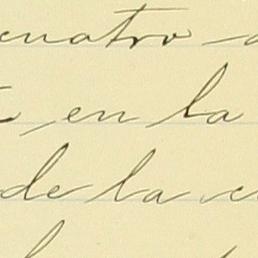 cuatro
en la
de la